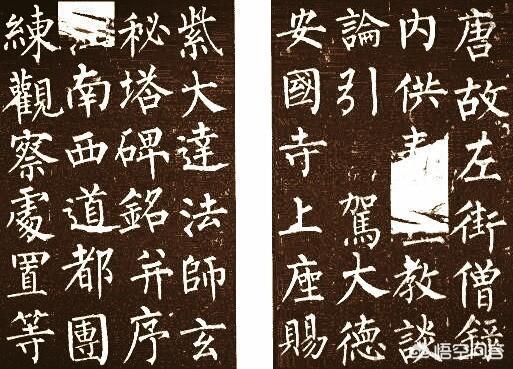 唐故左街僧錄
内供教談
論引駕大德
安國寺上座賜
紫大達法師玄
秘塔碑銘并序
南西道都團
練觀察處置等
悟空问答